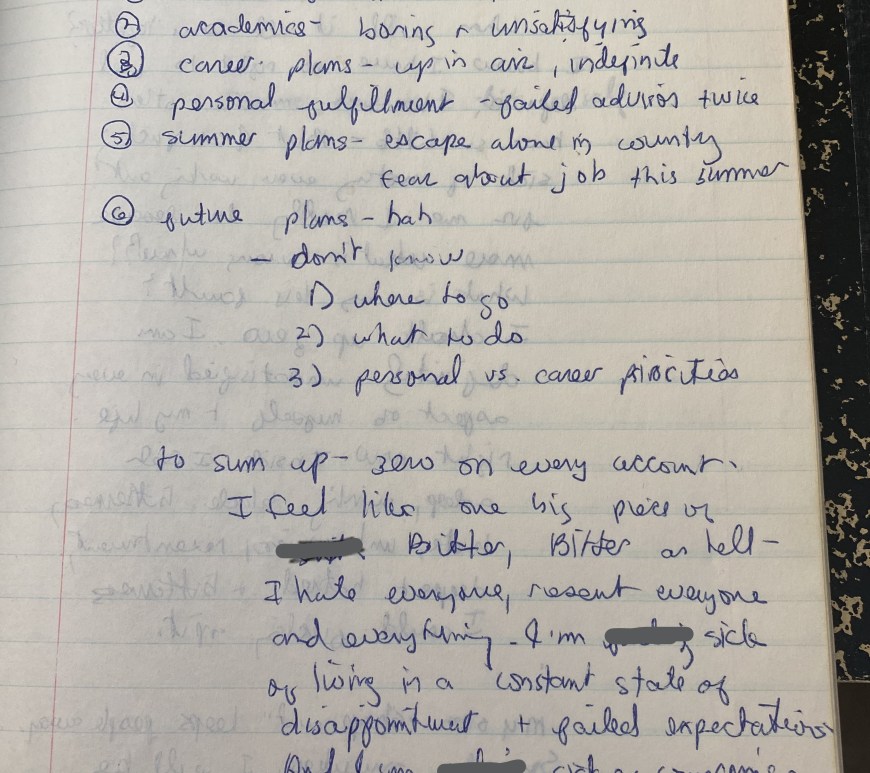 ② academics - boring + unsatisfying
③ career plans - up in air, indefinite
④ personal fulfillment - failed twice
⑤ summer plans - escape alone in country
fear about job this summer
⑥ future plans - hah
- don't know
1) where to go
2) what to do
3) personal vs. career priorities
to sum up - zero on every account.
I feel like one big piece of
Bitter, Bitter as hell -
I hate everyone, resent everyone
and everything. I'm sick
of living in a constant state of
disappointment + failed expectations
And I'm